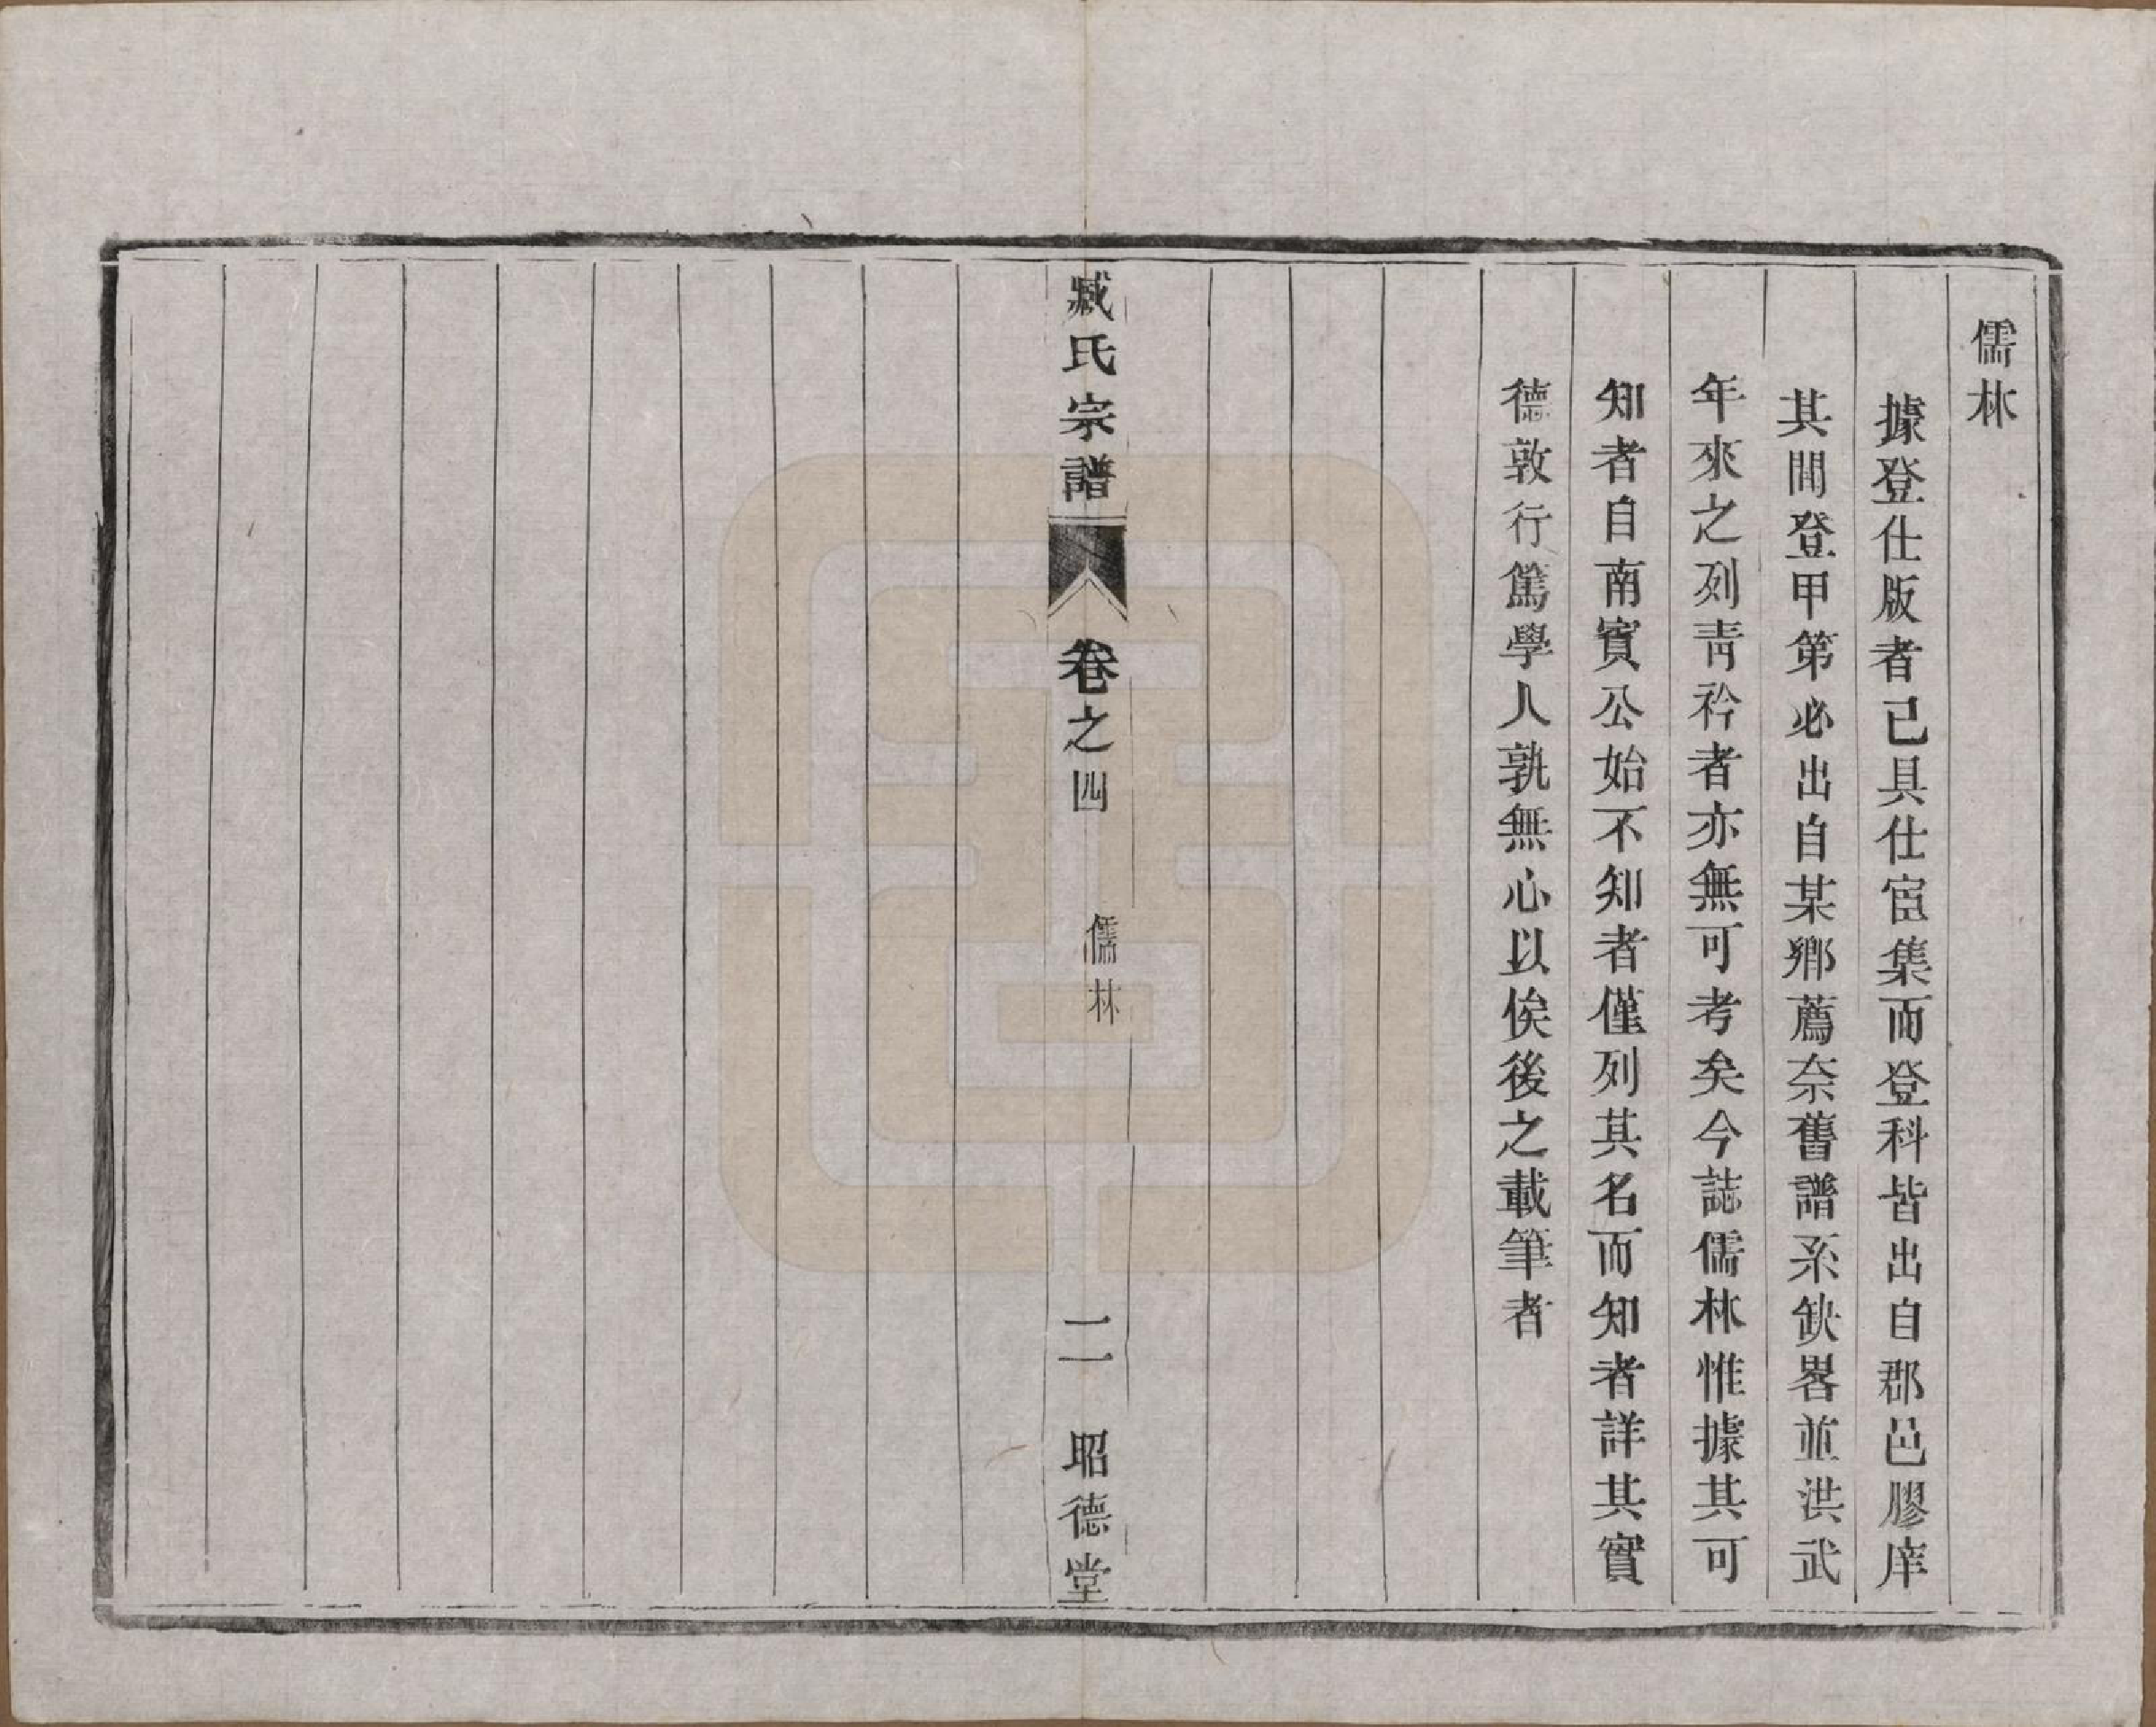 儒林
據登仕版者已具仕宦集而登科皆出自郡邑膠庠
其間登甲第必出自某鄉薦奈舊譜系缺畧並洪武
年來之列青衿者亦無可考矣今誌儒林惟據其可
知者自南賓公始不知者僅列其名而知者詳其實
德敦行篤學人孰無心以俟後之載筆者
臧氏宗譜
卷之四
儒林
二
昭德堂